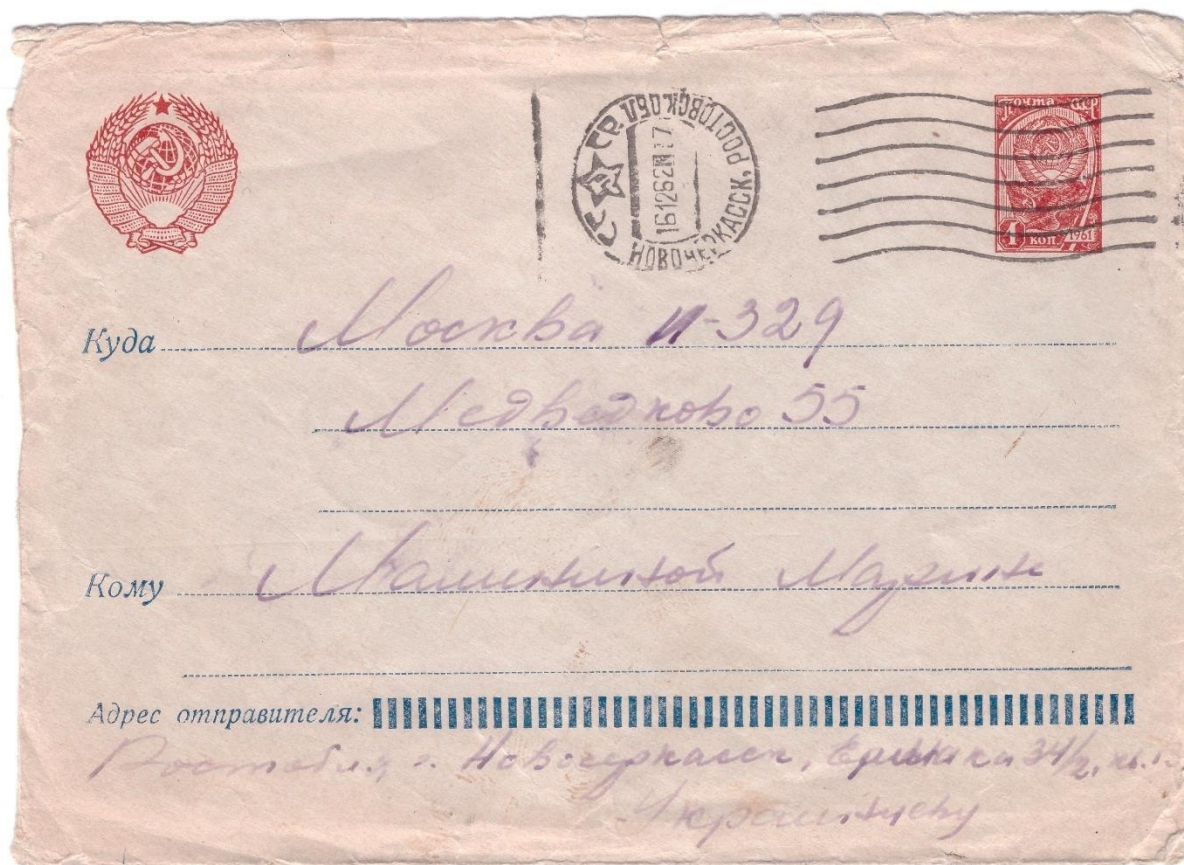 НОВОЧЕРКАССК, РОСТОВСК.ОБЛ.
161262
ПОЧТА СССР
4 КОП 1961
Куда Москва И-329
Медведково 55
Кому Калининой Марии
Адрес отправителя:
Ростобл., г. Новочеркасск, Ермака 34/2, кв. 13